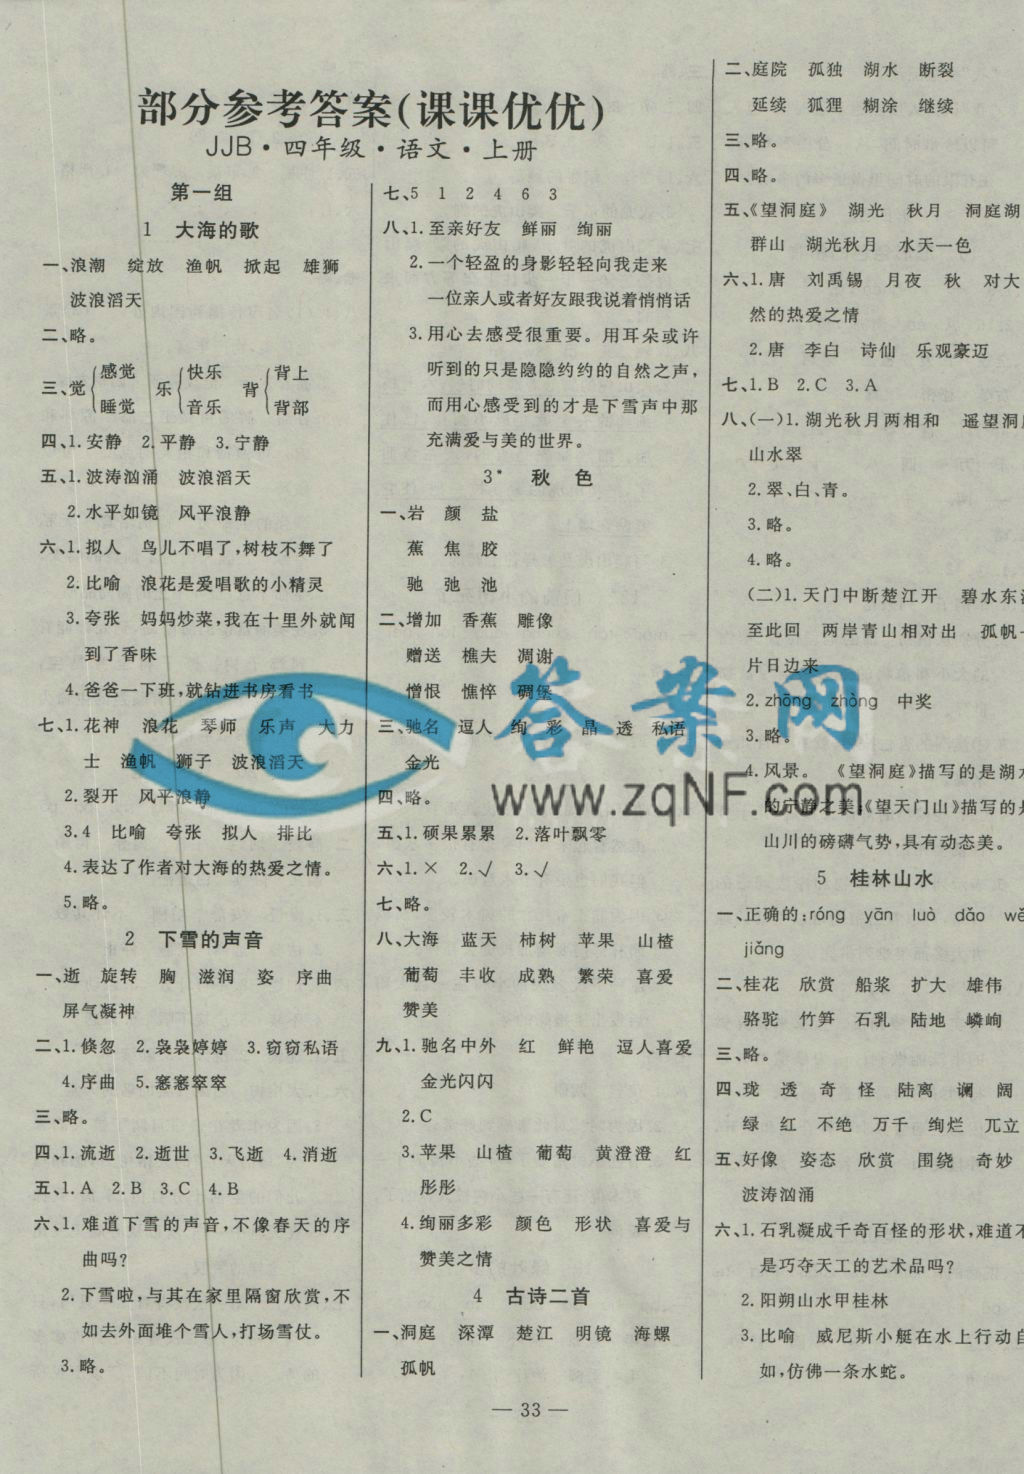 部分参考答案(课课优优)
JJB·四年级·语文·上册
第一组
1 大海的歌
一、浪潮 绽放 渔帆 掀起 雄狮
波浪滔天
二、略。
三、觉 感觉 睡觉 乐 快乐 音乐 背 背上 背部
四、1.安静 2.平静 3.宁静
五、1.波涛汹涌 波浪滔天
2.水平如镜 风平浪静
六、1.拟人 鸟儿不唱了,树枝不舞了
2.比喻 浪花是爱唱歌的小精灵
3.夸张 妈妈炒菜,我在十里外就闻
到了香味
4.爸爸一下班,就钻进书房看书
七、1.花神 浪花 琴师 乐声 大力
士 渔帆 狮子 波浪滔天
2.裂开 风平浪静
3.4 比喻 夸张 拟人 排比
4.表达了作者对大海的热爱之情。
5.略。
2 下雪的声音
一、逝 旋转 胸 滋润 姿 序曲
屏气凝神
二、1.倏忽 2.袅袅婷婷 3.窃窃私语
4.序曲 5.窸窸窣窣
三、略。
四、1.流逝 2.逝世 3.飞逝 4.消逝
五、1.A 2.B 3.C 4.B
六、1.难道下雪的声音,不像春天的序
曲吗?
2.下雪啦,与其在家里隔窗欣赏,不
如去外面堆个雪人,打场雪仗。
3.略。
七、5 1 2 4 6 3
八、1.至亲好友 鲜丽 绚丽
2.一个轻盈的身影轻轻向我走来
一位亲人或者好友跟我说着悄悄话
3.用心去感受很重要。用耳朵或许
听到的只是隐隐约约的自然之声,
而用心感受到的才是下雪声中那
充满爱与美的世界。
3* 秋色
一、岩 颜 盐
蕉 焦 胶
驰 弛 池
二、增加 香蕉 雕像
赠送 樵夫 凋谢
憎恨 憔悴 碉堡
三、驰名 逗人 绚 彩 晶 透 私语
金光
四、略。
五、1.硕果累累 2.落叶飘零
六、1.× 2.√ 3.√
七、略。
八、大海 蓝天 柿树 苹果 山楂
葡萄 丰收 成熟 繁荣 喜爱
赞美
九、1.驰名中外 红 鲜艳 逗人喜爱
金光闪闪
2.C
3.苹果 山楂 葡萄 黄澄澄 红
彤彤
4.绚丽多彩 颜色 形状 喜爱与
赞美之情
4 古诗二首
一、洞庭 深潭 楚江 明镜 海螺
孤帆
二、庭院 孤独 湖水 断裂
延续 狐狸 糊涂 继续
三、略。
四、略。
五、《望洞庭》 湖光 秋月 洞庭湖
群山 湖光秋月 水天一色
六、1.唐 刘禹锡 月夜 秋 对大
然的热爱之情
2.唐 李白 诗仙 乐观豪迈
七、1.B 2.C 3.A
八、(一)1.湖光秋月两相和 遥望洞庭
山水翠
2.翠、白、青。
3.略。
4.略。
(二)1.天门中断楚江开 碧水东流
至此回 两岸青山相对出 孤帆一
片日边来
2.zhōng zhòng 中奖
3.略。
4.风景。 《望洞庭》描写的是湖水
的宁静之美;《望天门山》描写的是
山川的磅礴气势,具有动态美。
5 桂林山水
一、正确的:róng yān luò dǎo wē
jiǎng
二、桂花 欣赏 船桨 扩大 雄伟
骆驼 竹笋 石乳 陆地 嶙峋
三、略。
四、珑 透 奇 怪 陆离 谰 阔
绿 红 不绝 万千 绚烂 兀立
五、好像 姿态 欣赏 围绕 奇妙
波涛汹涌
六、1.石乳凝成千奇百怪的形状,难道不
是巧夺天工的艺术品吗?
2.阳朔山水甲桂林
3.比喻 威尼斯小艇在水上行动自
如,仿佛一条水蛇。
答案网
www.zqNF.com
— 33 —